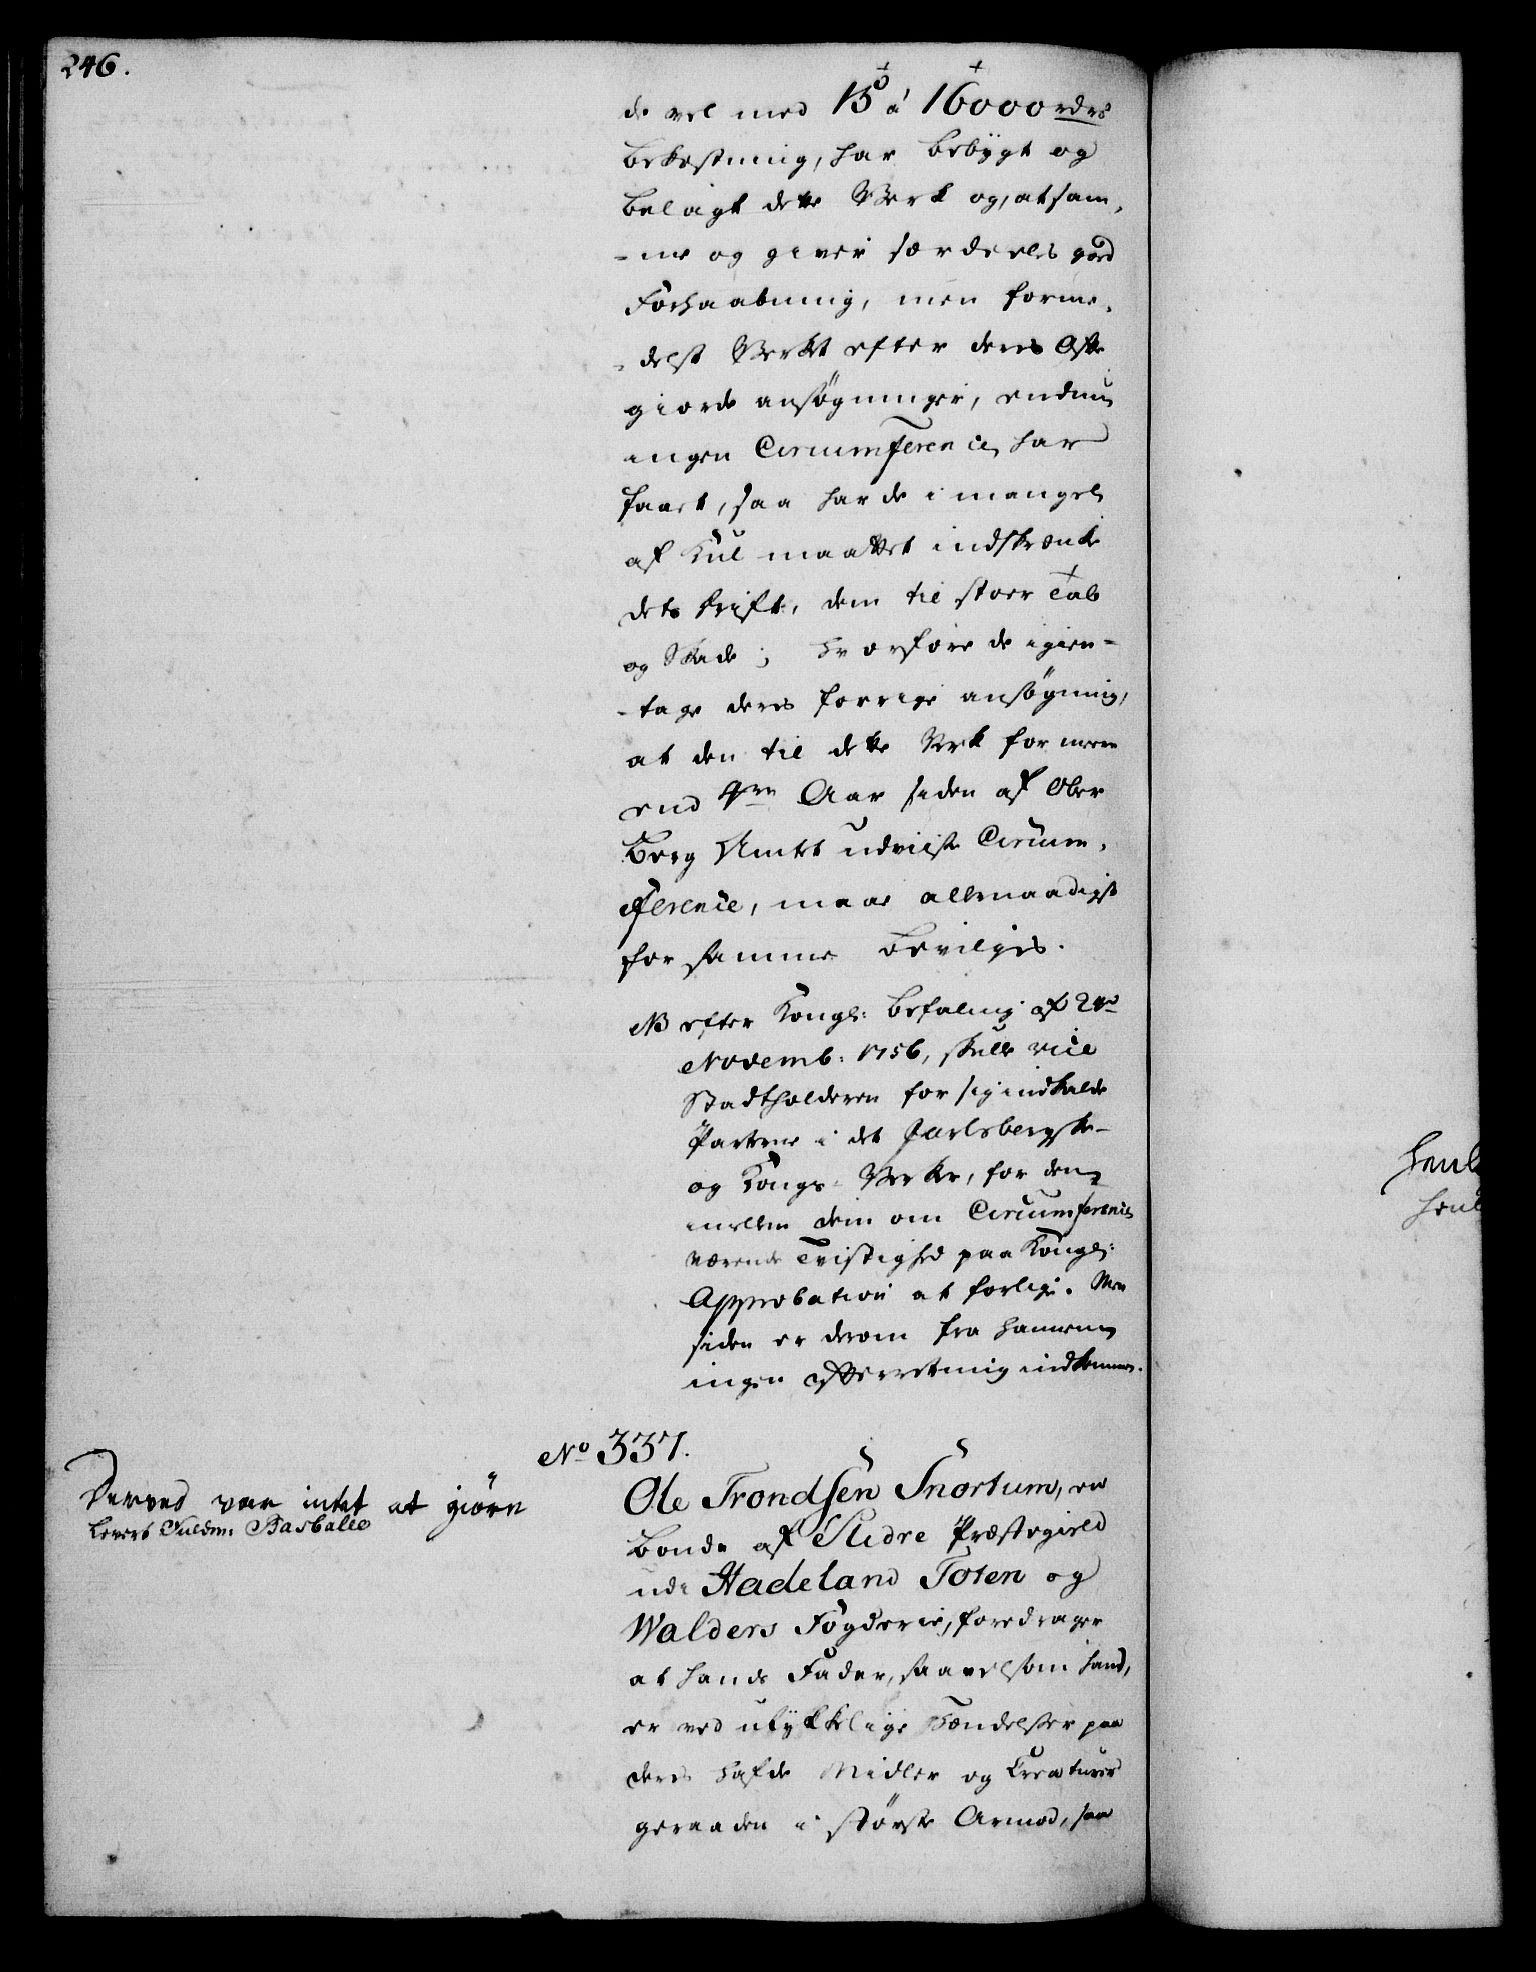 246.
de vel med 15 à 16000 rdrs
bekostning, har bebygt og
belagt dette Verk og, at sam-
-me og giver særdeeles god
Forhaabning, men forme-
-delst Verket efter deres ofte
giorde ansøgninger, endnu
ingen Circumference har
faaet, saa har de i mangel
af Kul maattet indskrænke
dets Drift, dem til stoer Tab
og Skade; hvorfore de igien-
-tage deres forrige ansøgning,
at den til dette Verk for meere
end 4re Aar siden af Ober
Berg Amtet udviiste Circum-
ference, maae allernaadigst
for samme bevilges.
NB efter Kongl: befaling af 2den
Novemb: 1756, skulle vice
Stadtholderen for sig indkalde
Parterne i det Jarlsbergske-
og Kongs-Verke, for den
imellem dem om Circumference
værende Tvistighed paa Kongl:
Approbation at forlige. Men
siden er derom fra hannem
ingen efterretning indkommen.
No 337.
Derved var intet at giøre
Levers Fuldm: Basballe
Ole Trondsen Snortum, en
bonde af Slidre Præstegield
udi Hadeland Toten og
Walders Fogderie, foredrager
at hands Fader, saavelsom hand,
er ved ulykkelige Hændelser paa
deres hafde Midler og Creaturer
geraaden i største Armod, saa